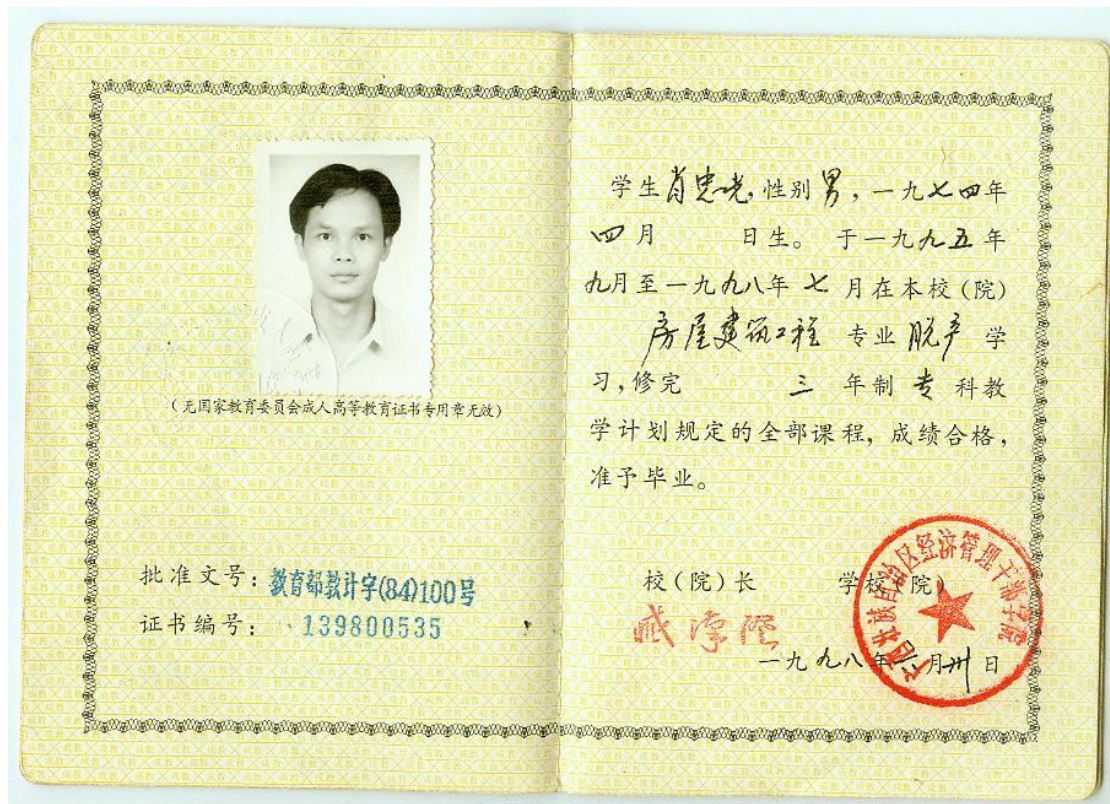 (无国家教育委员会成人高等教育证书专用章无效)
批准文号:教育部教计字(84)100号
证书编号:139800535
学生肖忠光,性别男,一九七四年
四月 日生。于一九九五年
九月至一九九八年七月在本校(院)
房屋建筑工程 专业脱产学
习,修完 三 年制专科教
学计划规定的全部课程,成绩合格,
准予毕业。
校(院)长 学校(院)
广西壮族自治区经济管理干部学院
一九九八年六月卅日